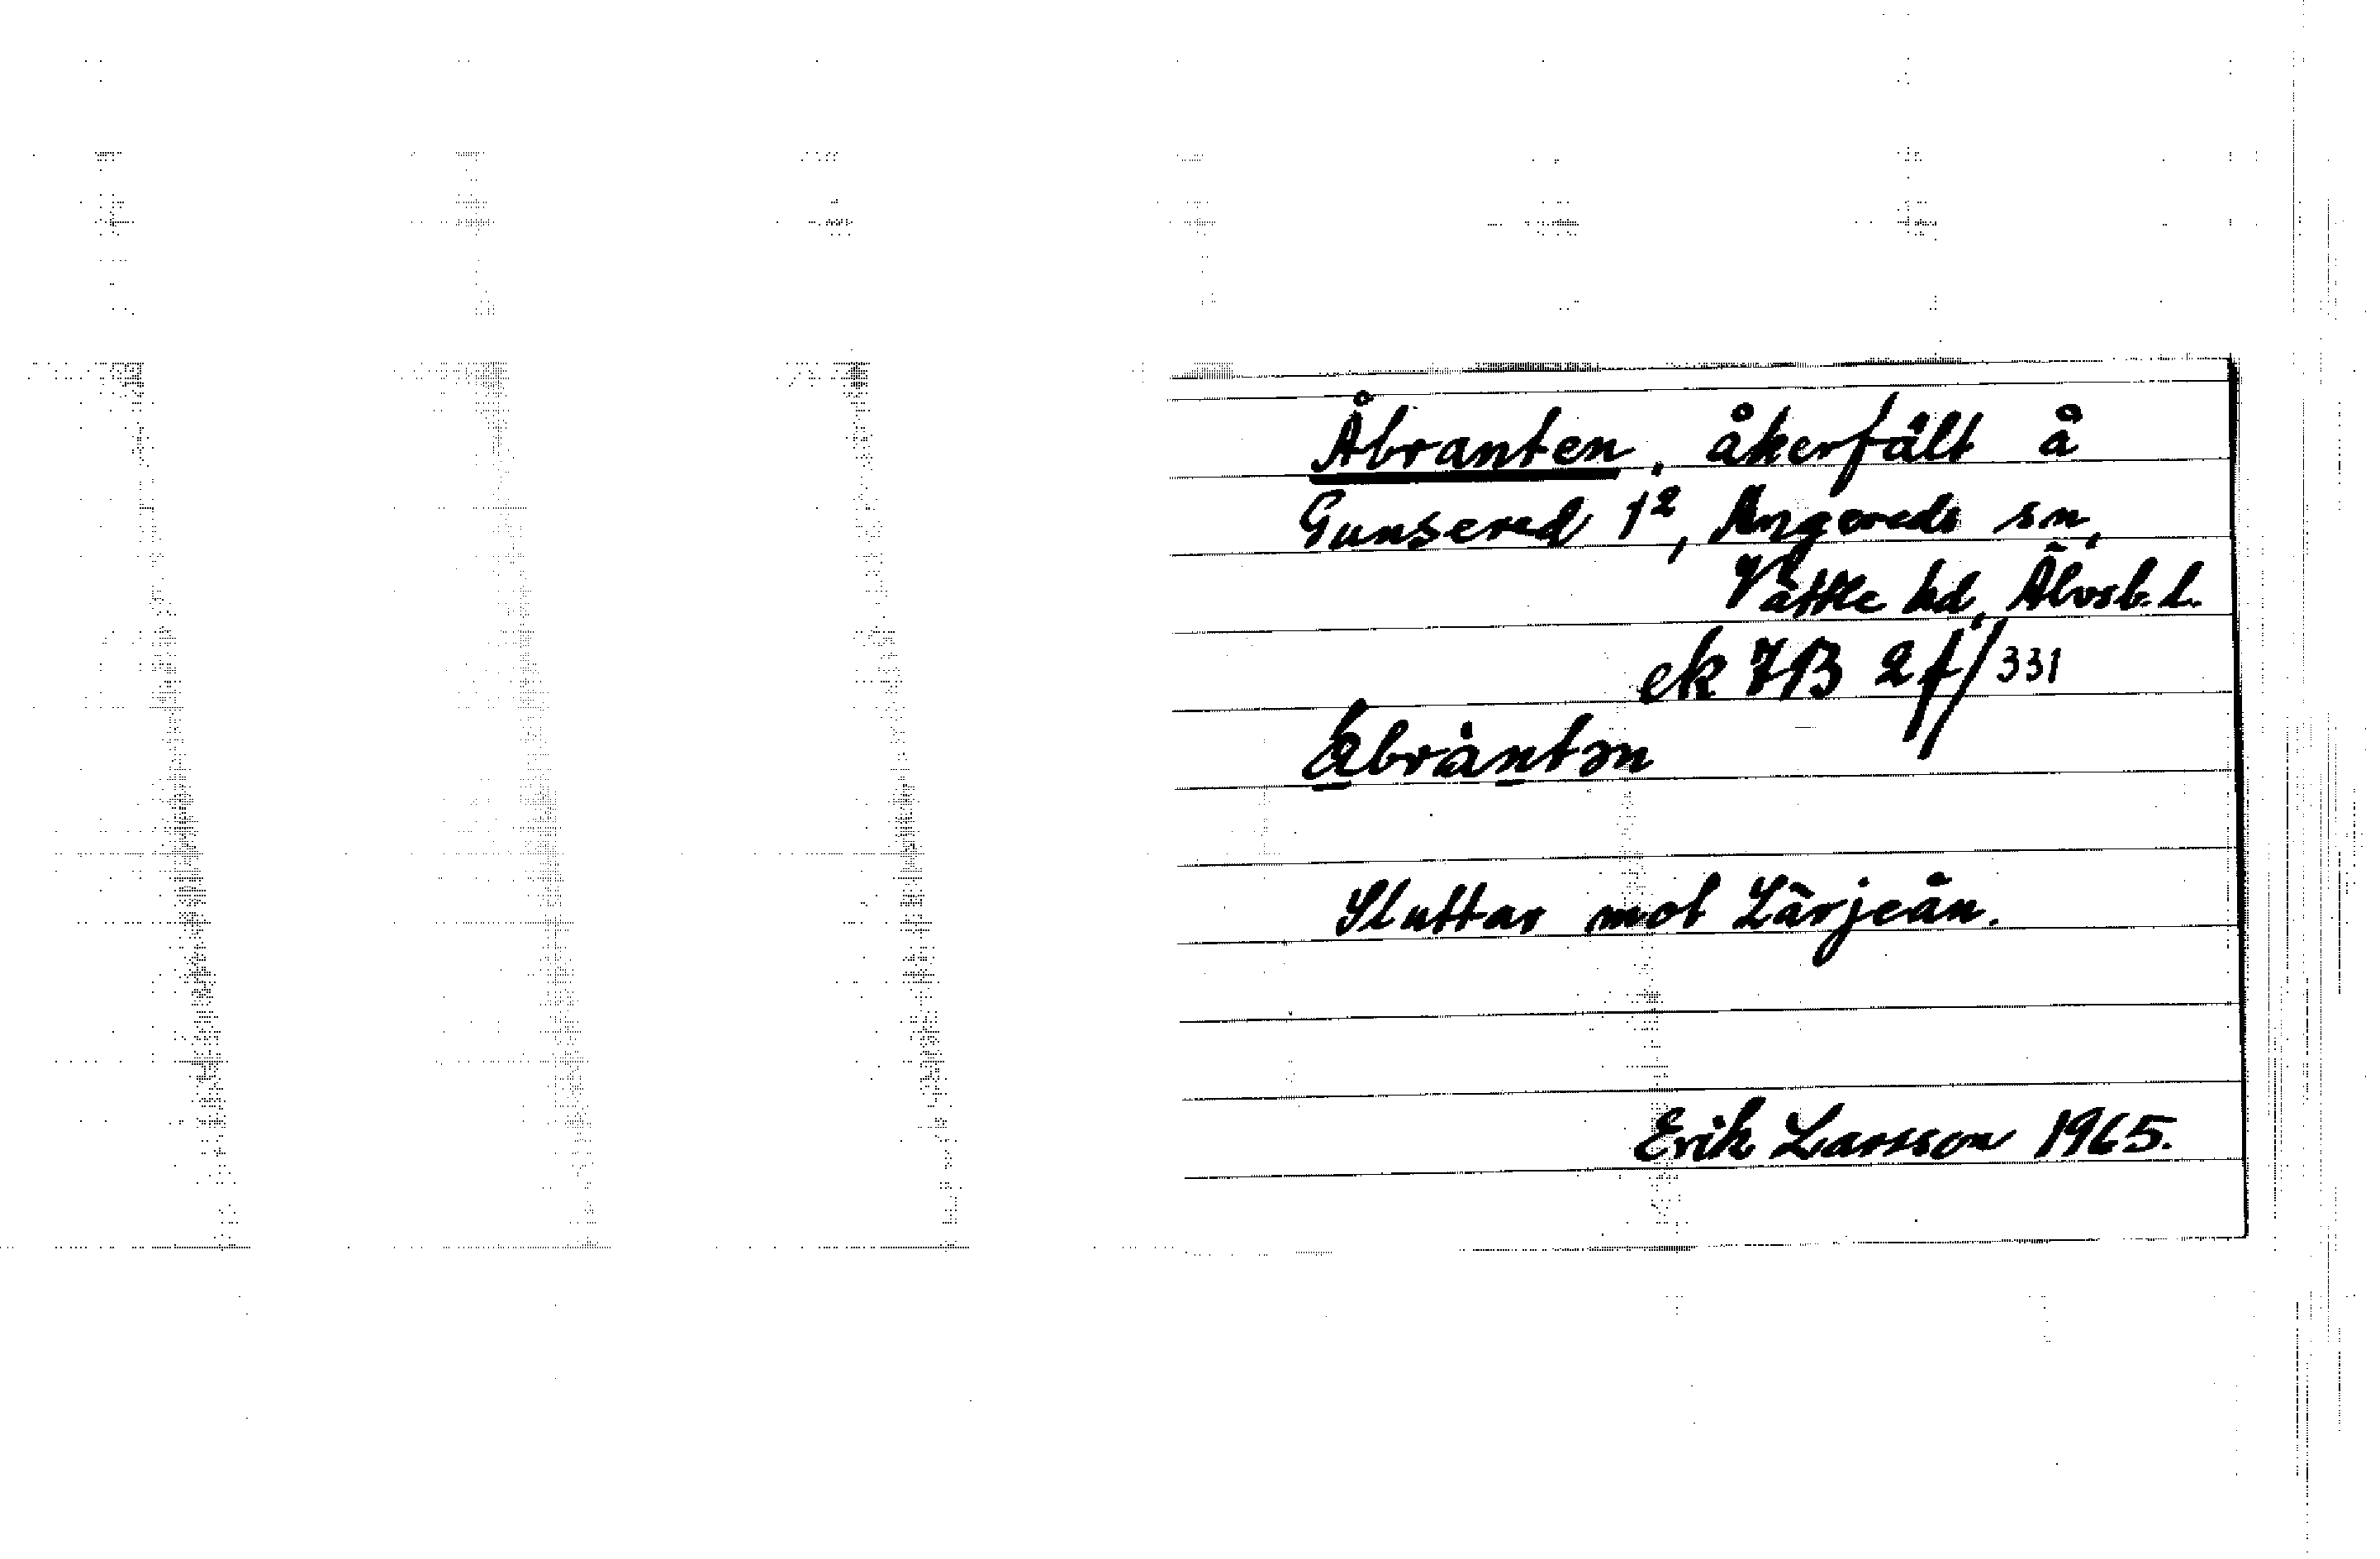 Åbranten, åkerfält å
Gunsered 1², Angereds sn,
Vättle hd, Älvsb. l.
ek 7B 2f/331
Sluttar mot Lärjeån.
Erik Larsson 1965.